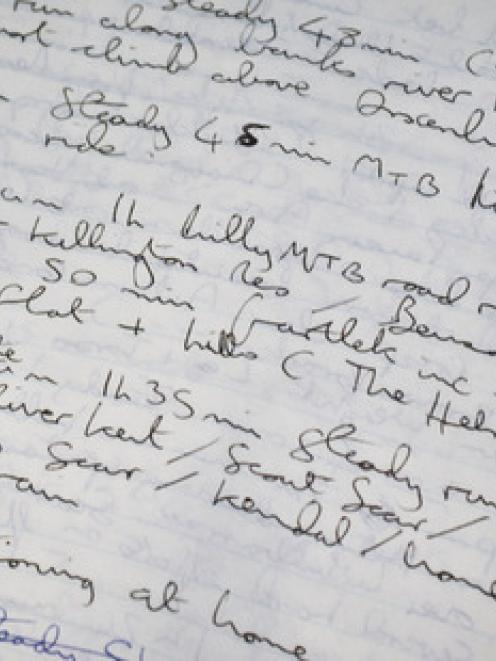 steady 43min
run along banks river
not climb above
Steady 45min MTB
ride.
am 1h hilly MTB road
Killington Res /
50 min fartlek inc
flat + hills ( The
am 1h35min Steady run
River Kent / Scout Scar /
Scar / Kendal / home
rain
at home